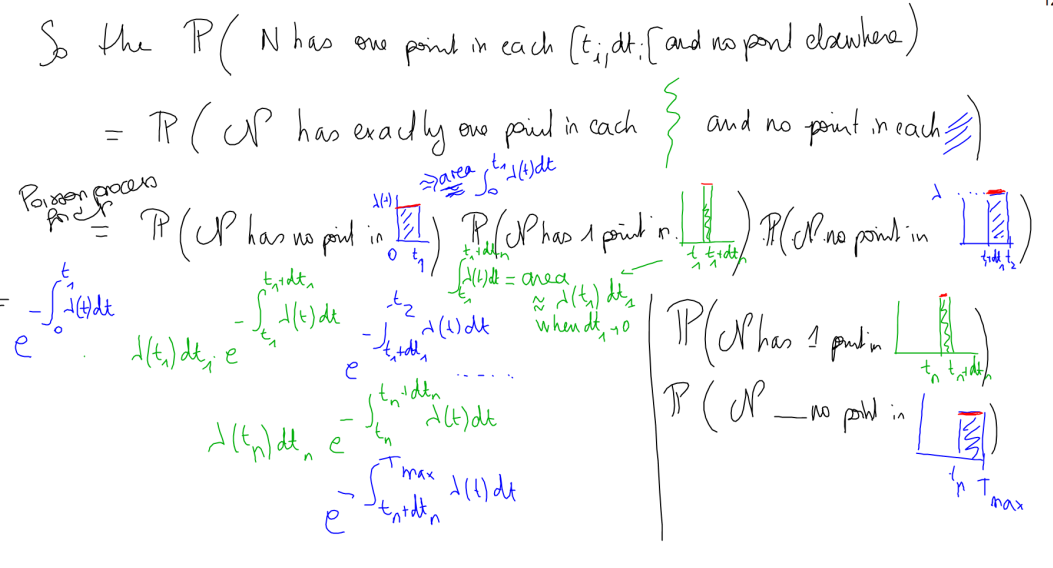 So the ℙ( N has one point in each [t_i, dt_i[ and no point elsewhere)
= ℙ( 𝒩 has exactly one point in each and no point in each )
Poisson process
for 𝒩
λ(t) ≈ area ∫_0^{t_1} λ(t)dt
= ℙ( 𝒩 has no point in ) ℙ( 𝒩 has 1 point in ) ℙ( 𝒩 no point in )
0 t_1
t_1 t_1+dt_1
λ
t_1+dt_1 t_2
∫_{t_1}^{t_1+dt_n} λ(t)dt = area
≈ λ(t_1) dt_1
when dt_1→0
= e^{-∫_0^{t_1} λ(t)dt} . λ(t_1)dt_1 . e^{-∫_{t_1}^{t_1+dt_1} λ(t)dt} e^{-∫_{t_1+dt_1}^{t_2} λ(t)dt} ......
λ(t_n)dt_n e^{-∫_{t_n}^{t_n+dt_n} λ(t)dt}
e^{-∫_{t_n+dt_n}^{T_max} λ(t)dt}
ℙ( 𝒩 has 1 point in )
t_n t_n+dt_n
ℙ( 𝒩 __ no point in )
t_n T_max